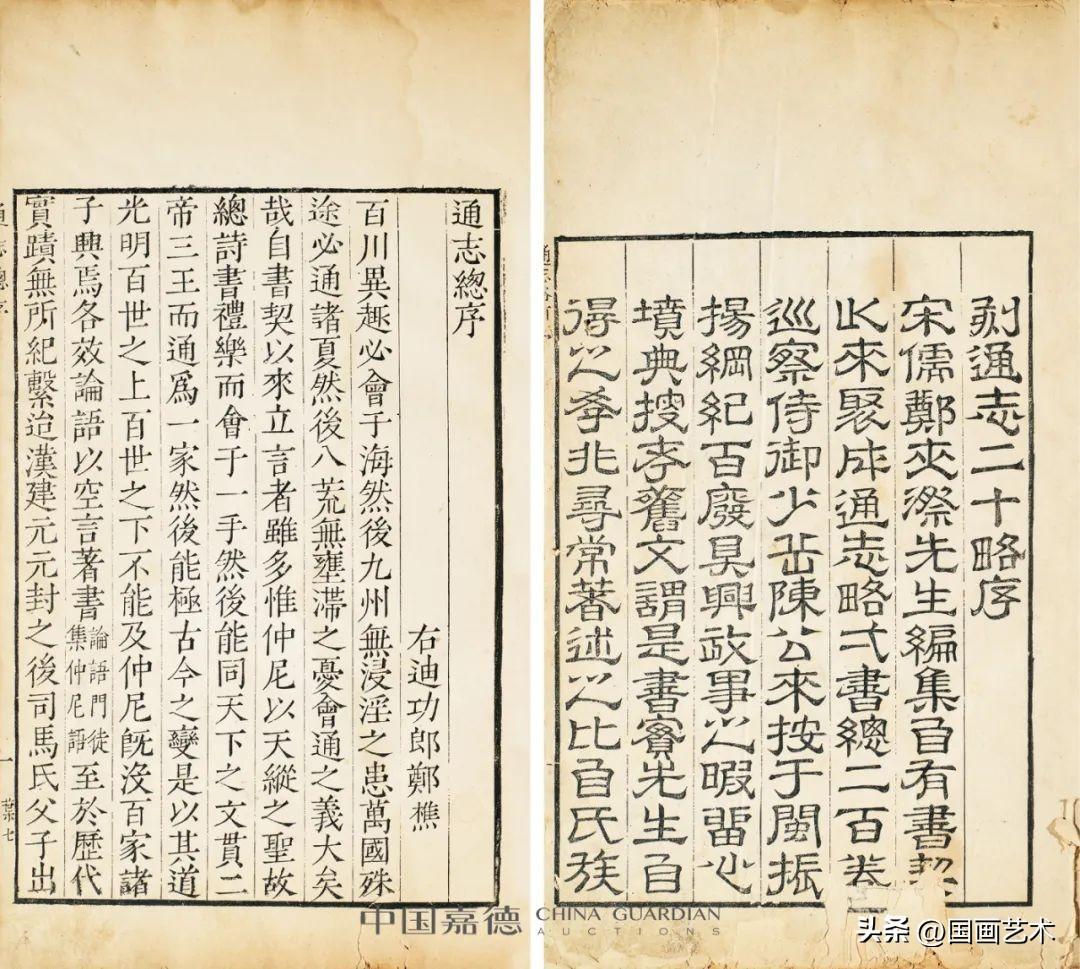 刻通志二十略序
宋儒鄭夾漈先生編集自有書契
此來聚成通志略弍書總二百卷
巡察侍御少岳陳公來按于閩振
揚綱紀百廢具興政事之暇留心
墳典搜考舊文謂是書實先生自
得之學非尋常著述之比自氏族
通志總序
右迪功郎鄭樵
百川異趣必會于海然後九州無浸淫之患萬國殊
途必通諸夏然後八荒無壅滯之憂會通之義大矣
哉自書契以來立言者雖多惟仲尼以天縱之聖故
總詩書禮樂而會于一手然後能同天下之文貫二
帝三王而通爲一家然後能極古今之變是以其道
光明百世之上百世之下不能及仲尼旣沒百家諸
子興焉各效論語以空言著書論語門徒集仲尼語至於歷代
實蹟無所紀繫迨漢建元元封之後司馬氏父子出
通志總序
一
葉七
中国嘉德 CHINA GUARDIAN
AUCTIONS
头条 @国画艺术